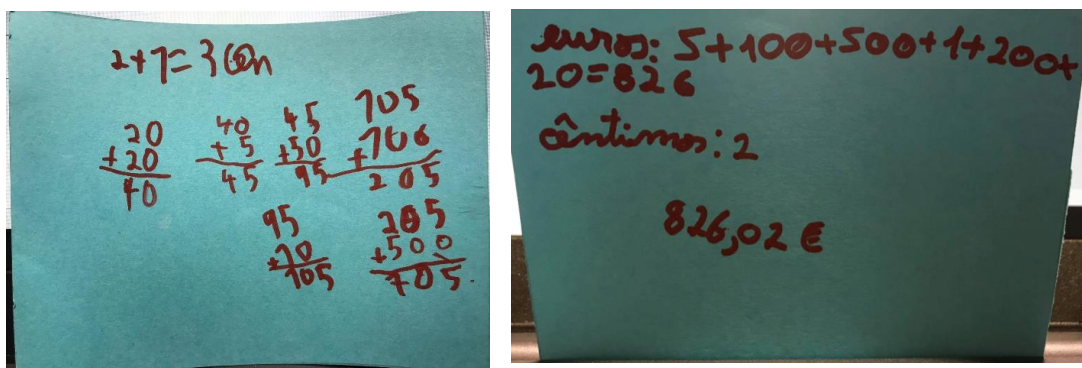 2+1=3 Cen
20
+20
40
40
+ 5
45
45
+50
95
105
+100
205
95
+10
105
205
+500
705
euros: 5+100+500+1+200+
20=826
cêntimos: 2
826,02 €